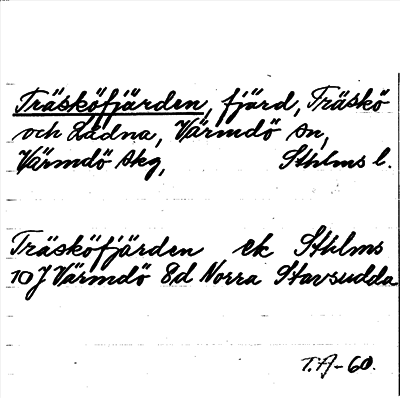 Träsköfjärden, fjärd, Träskö
och Ladna, Värmdö sn,
Värmdö skg, Sthlms l.
Träsköfjärden ek Sthlms
10J Värmdö 8d Norra Stavsudda
T.A-60.